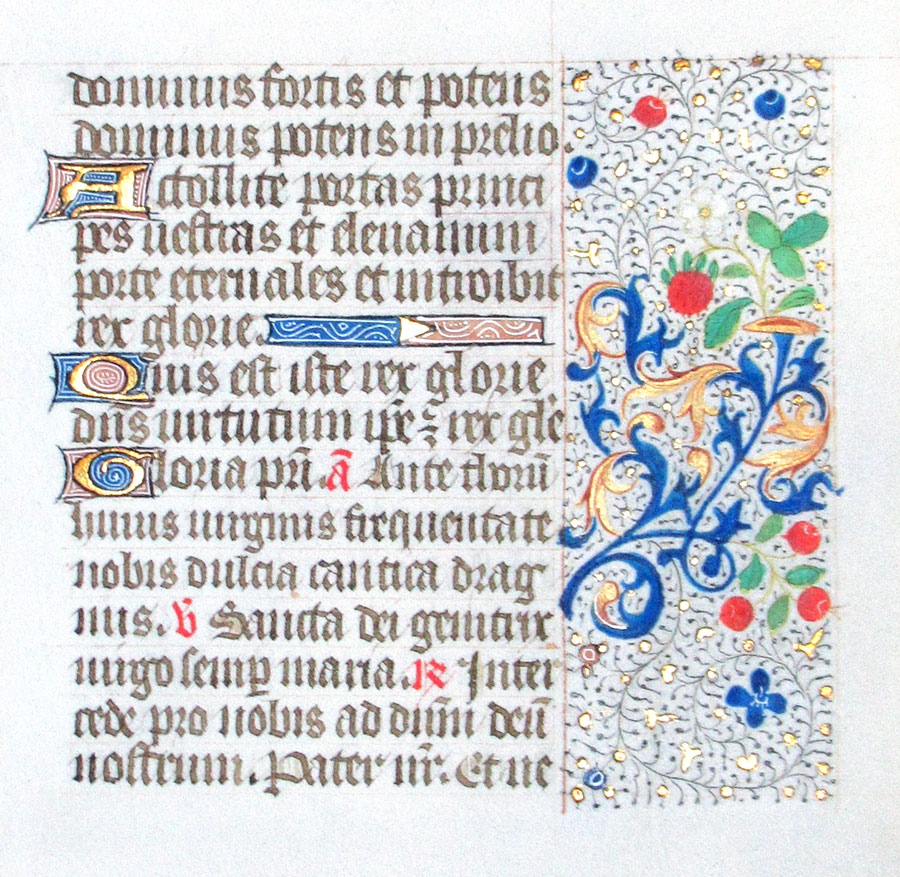 dominus fortis et potens
dominus potens in prelio.
Attollite portas princi
pes uestras et eleuamini
porte eternales et introibit
rex glorie.
Quis est iste rex glorie
dn̄s uirtutum ip̄e ⁊ rex gl̄e
Gloria pr̄i. ā Ante thorū
huius uirginis frequentate
nobis dulcia cantica drag
mis. V̄ Sancta dei genitrix
uirgo semꝑ maria. R̄ Inter
cede pro nobis ad dn̄m deū
nostrum. Pater nr̄. Et ne